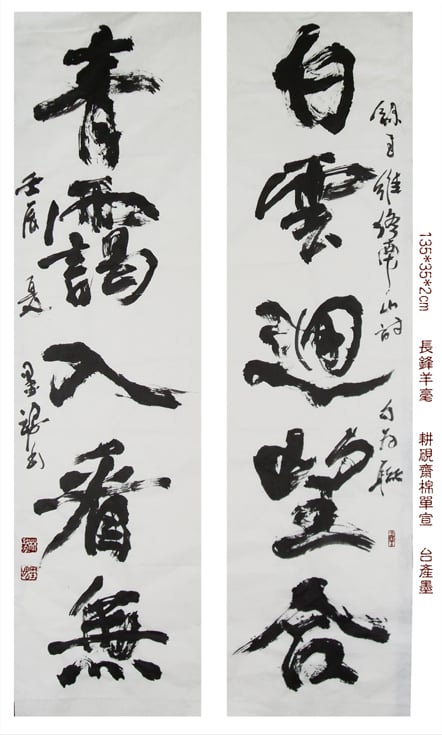 135*35*2cm 長鋒羊毫 耕硯齋棉單宣 台產墨
錄王維終南山詩 句為聯
白雲迴望合
青靄入看無
壬辰 夏 墨